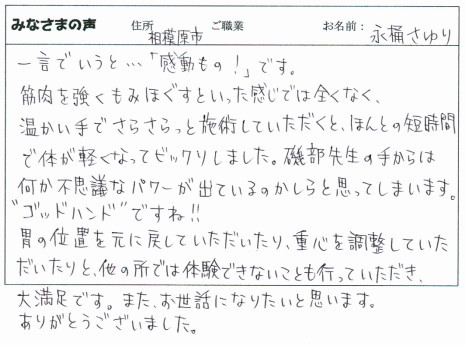 みなさまの声 住所 相模原市 ご職業 お名前: 永桶さゆり
一言でいうと…「感動もの!」です。
筋肉を強くもみほぐすといった感じでは全くなく、
温かい手でさらさらっと施術していただくと、ほんとの短時間
で体が軽くなってビックリしました。磯部先生の手からは
何か不思議なパワーが出ているのかしらと思ってしまいます。
"ゴッドハンド"ですね!!
胃の位置を元に戻していただいたり、重心を調整していた
だいたりと、他の所では体験できないことも行っていただき、
大満足です。また、お世話になりたいと思います。
ありがとうございました。